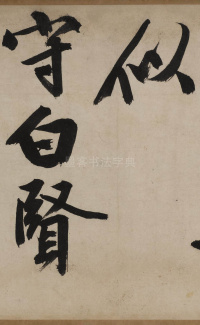 似
守白賢